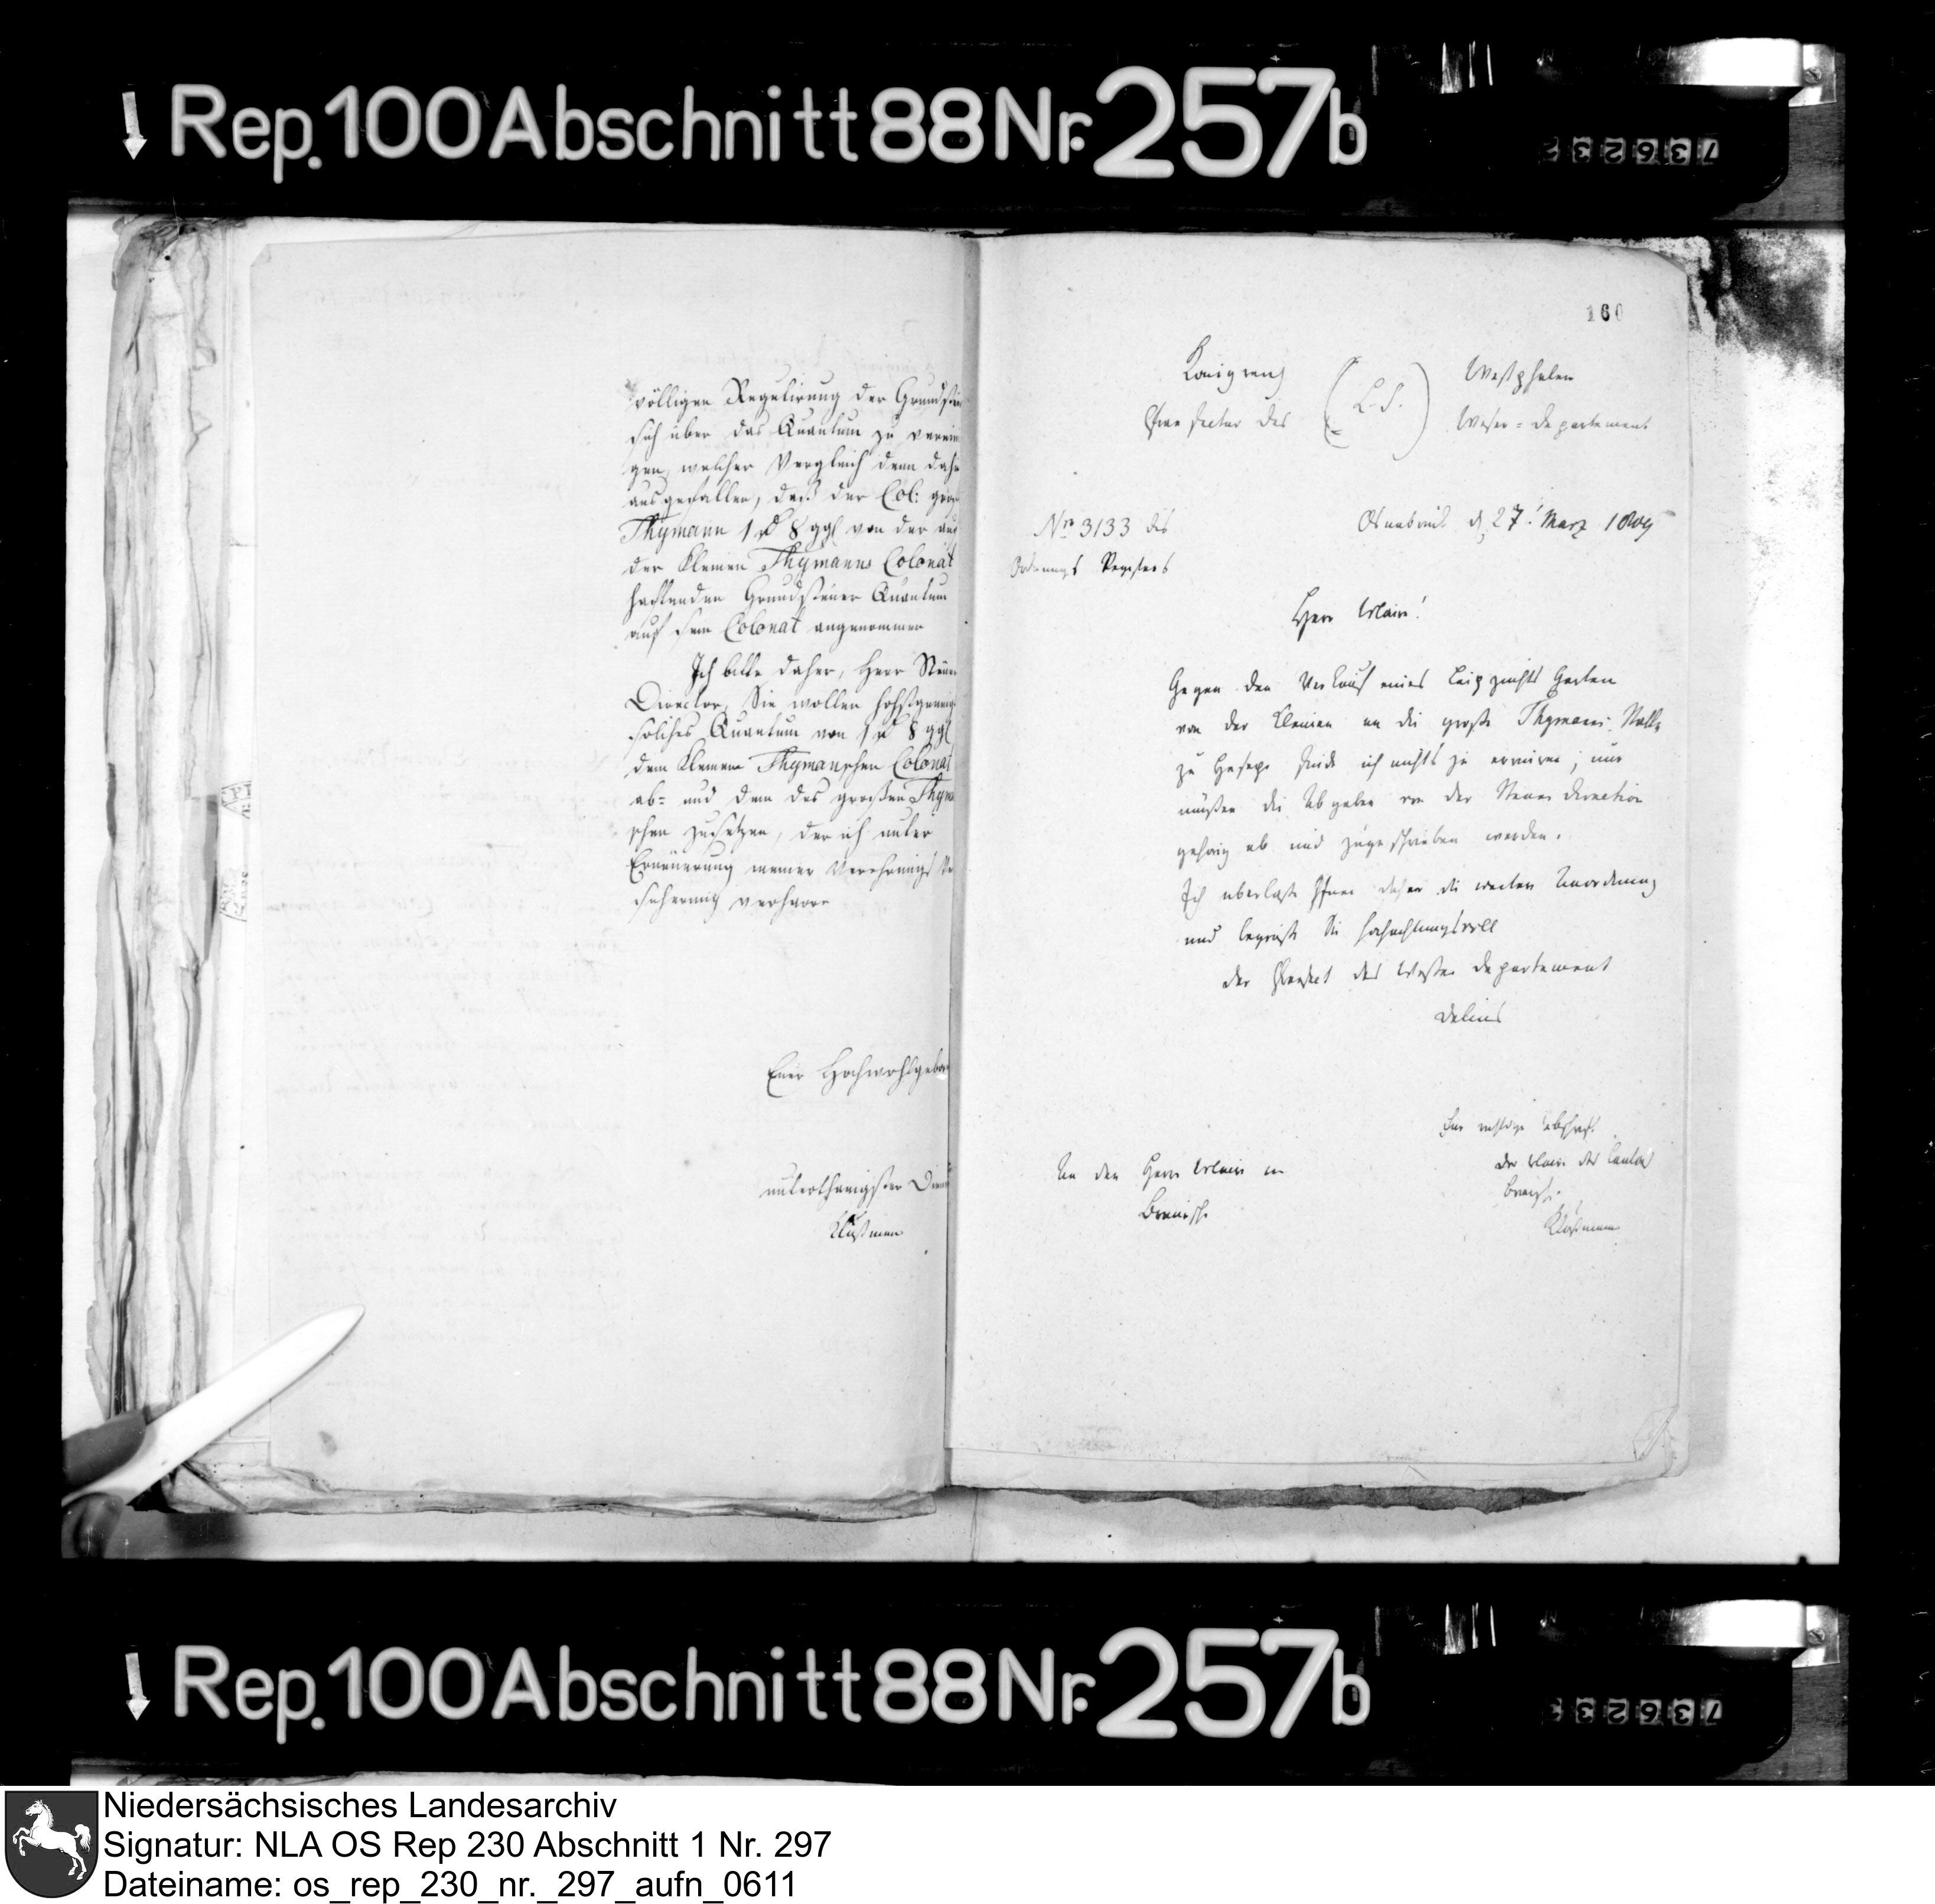 Rep. 100 Abschnitt 88 Nr. 257b
736232
völligen Regulirung der Grundsteu
sich über das Quantum zu verein
gen, welcher Vergleich denn dahi
ausgefallen, daß der Col: gros
Thymann 1 rt 8 ggl von der auf
der kleinen Thymanns Colonat
haftenden Grundsteuer Quantum
auf sein Colonat angenommen
Ich bitte daher, Herr Steuer
Director, Sie wollen hochstgeneig
solches Quantum von 1 rt 8 ggl
dem kleinen Thymanschen Colonat
ab= und dem des großen Thyma
schen zusetzen, der ich unter
Erneuerung meiner Verehrungs Ve
sicherung verharre
Euer Hochwohlgebor
unterthänigster Diener
Klußmann
160
Königreich (L. S.) Westphalen
Praefectur des Weser=Departement
Nro 3133 des
Ordnungs Registers
Osnabrück d. 27t März 1809
Herr Maire!
Gegen den Verkauf eines Leibzuchts Garten
von der kleinen an die große Thymans Stelle
zu Hesepe finde ich nichts zu erinnern; nur
müßen die Abgaben von der Steuer Direction
gehörig ab und zugeschrieben werden.
Ich überlaße Ihnen daher die weitere Anordnung
und begrüße Sie hochachtungsvoll
der Präfect des Weser Departement
Delius
An den Herrn Maire in
Bramsche
Für richtige Abschrift
der Maire des Cantons
Bramsche
Klußmann
Rep. 100 Abschnitt 88 Nr. 257b
736233
Niedersächsisches Landesarchiv
Signatur: NLA OS Rep 230 Abschnitt 1 Nr. 297
Dateiname: os_rep_230_nr._297_aufn_0611